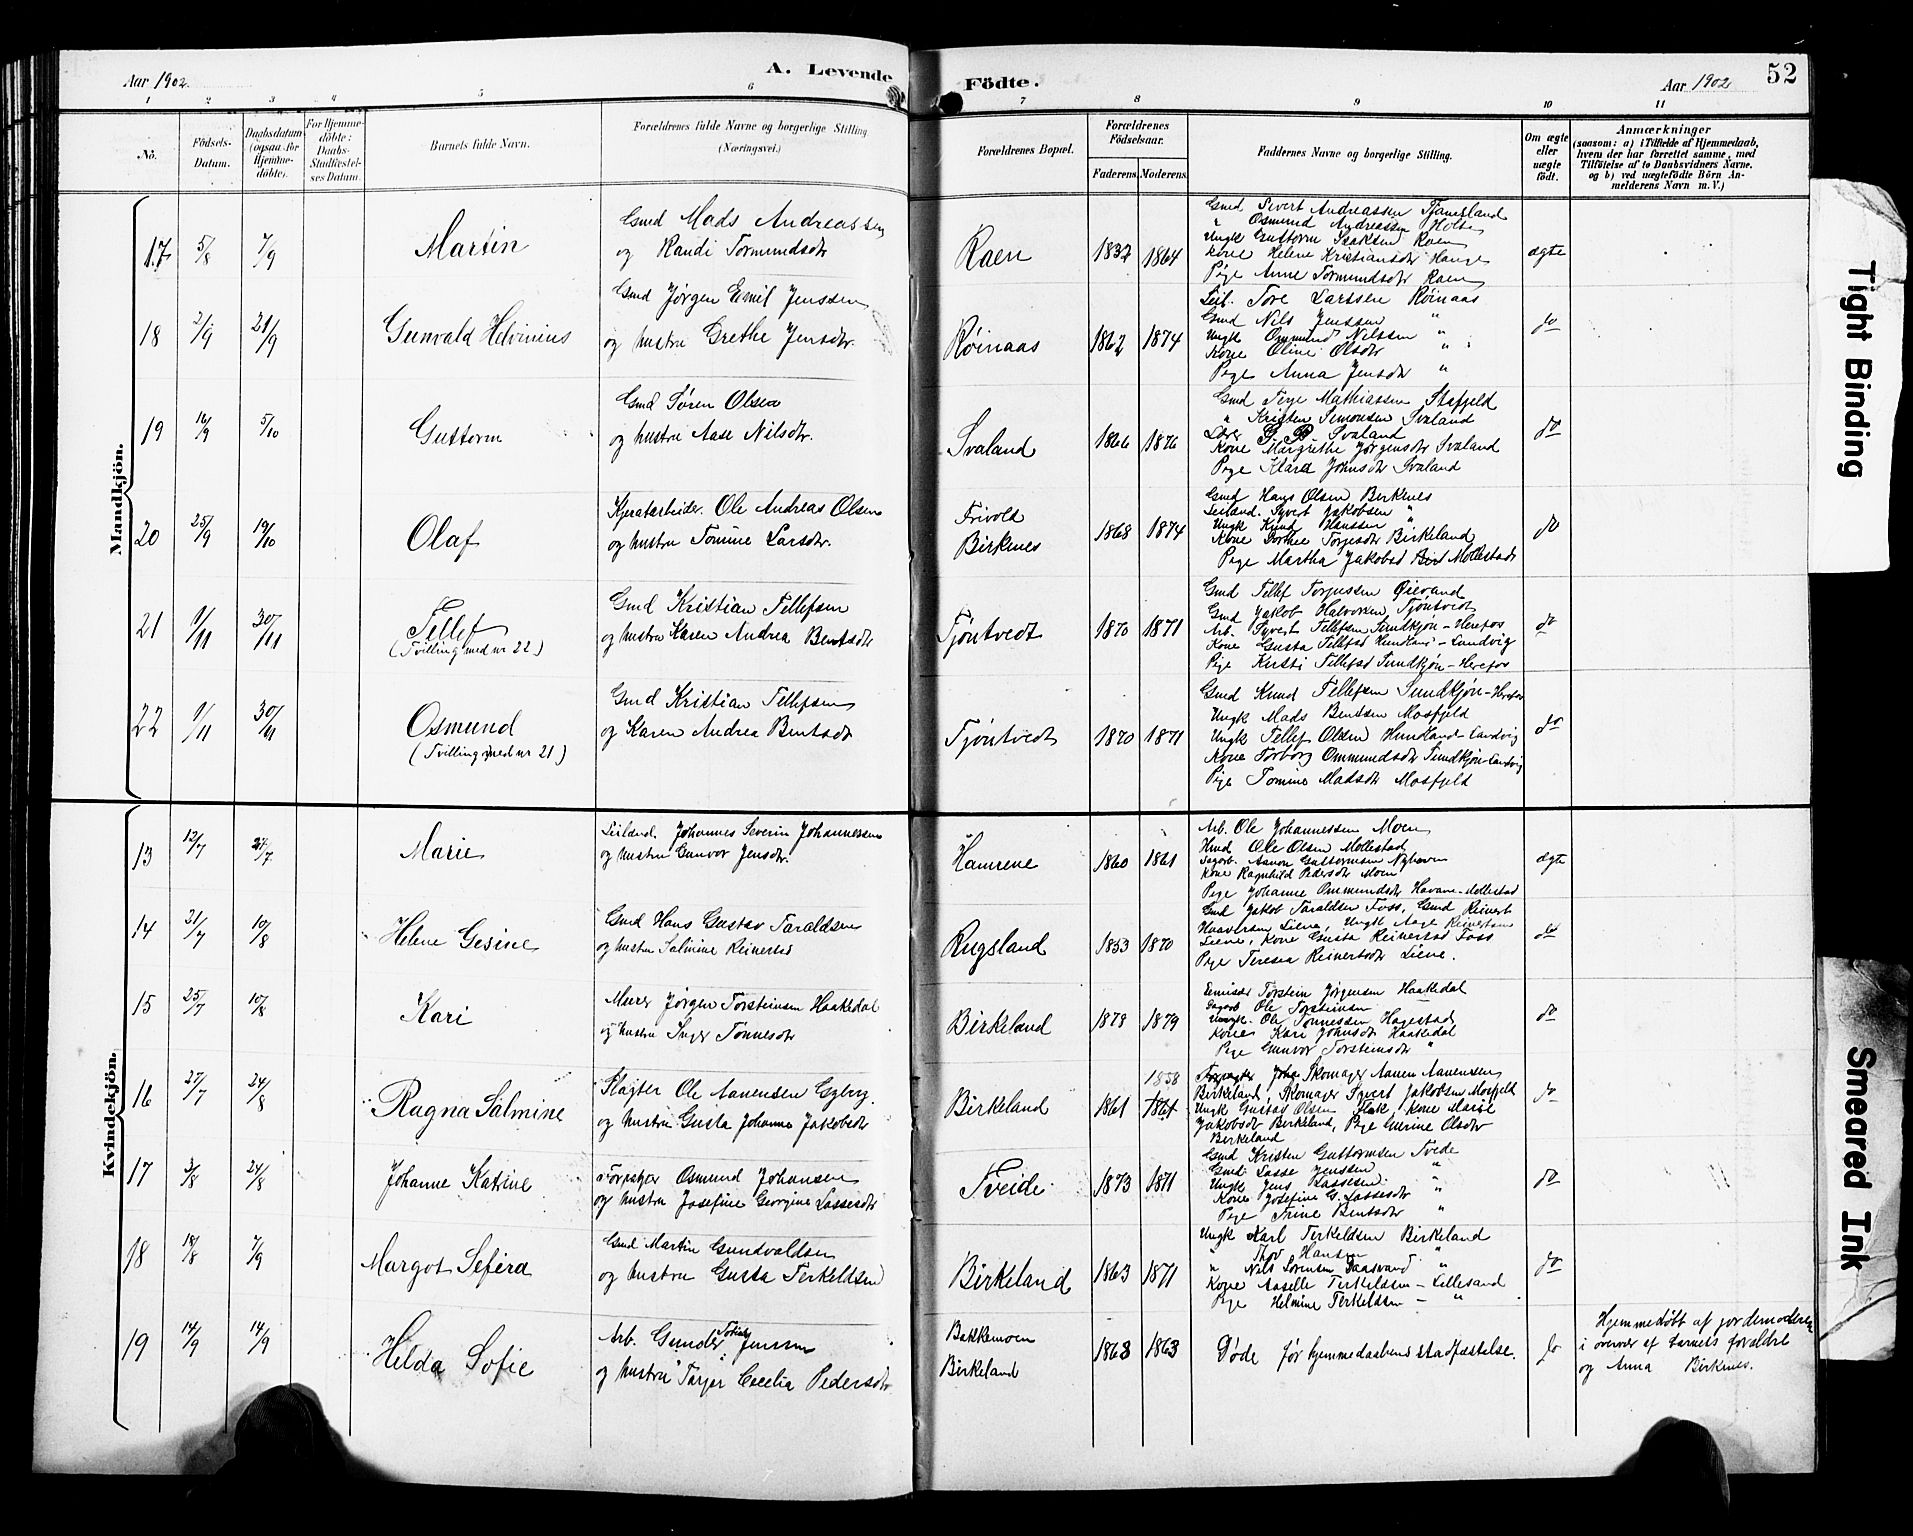 Aar 1902
A. Levende
Födte.
Aar 1902
52
1 2 3 4 5 6 7 8 9 10 11
No.
Födsels-
Datum.
Daabsdatum
(ogsaa for
Hjemme-
döbte).
For Hjemme-
döbte:
Daabs-
Stadfestel-
ses Datum.
Barnets fulde Navn.
Forældrenes fulde Navne og borgerlige Stilling
(Næringsvei.)
Forældrenes Bopæl.
Forældrenes
Födselsaar.
Faderens. Moderens.
Faddernes Navne og borgerlige Stilling.
Om ægte
eller
uægte
födt.
Anmærkninger
(saasom: a) i Tilfælde af Hjemmedaab,
hvem der har forrettet samme, med
Tilföielse af to Daabsvidners Navne,
og b) ved uægtefödte Börn An-
melderens Navn m. V.)
Mandkjön.
17 5/8 7/9 Martin
Gmd Mads Andreassen
og Randi Tormundsdtr
Raen 1832 1864
Gmd Sivert Andreassen Tjanesland
" Osmund Andreassen Holte
Ungk Guttorm Isaksen Raen
Kone Helene Kristiansdtr Hauge
Pige Anne Tormundsdtr Raen
ægte
18 2/9 21/9 Gunvald Helvinius
Gmd Jørgen Emil Jenssen
og hustru Grethe Jensdtr.
Røinaas 1862 1874
Leil. Tore Larssen Røinaas
Gmd Nils Jenssen "
Ungk Ommund Nilssen "
Kone Oline Olsdtr "
Pige Anna Jensdtr "
do
19 16/9 5/10 Guttorm
Gmd Søren Olsen
og hustru Aase Nilsdtr.
Svaland 1866 1876
Gmd Terje Mathiassen Stafjeld
" Kristen Simonsen Svaland
Lærer G. B. Svaland
Kone Margrethe Jørgensdtr Svaland
Pige Klara Johnsdtr Svaland
do
20 25/9 19/10 Olaf
Kjeratarbeider. Ole Andreas Olsen
og hustru Tomine Larsdtr.
Frivold
Birkenes
1868 1874
Gmd Hans Olsen Birkenes
Leiland. Syvert Jakobsen "
Ungk Knud Hanssen "
Kone Dorthee Torjesdtr Birkeland
Pige Martha Jakobsd Mollestad
do
21 9/11 30/11 Tellef
(Tvilling med nr 22)
Gmd Kristian Tellefsen
og hustru Karen Andrea Bentsdtr
Tjöntvedt 1870 1871
Gmd Tellef Torjussen Øievand
Gmd Jakob Halvorsen Tjöntvedt
Arb. Syvert Tellefsen Sundkjön-Herefos
Kone Gusta Tellefsd Hundland-Landvig
Pige Kirsti Tellefsd Sundkjön-Herefos
do
22 9/11 30/11 Osmund
(Tvilling med nr 21)
Gmd Kristian Tellefsen
og Karen Andrea Bentsdtr
Tjöntvedt 1870 1871
Gmd Knud Tellefsen Sundkjön-Herefos
Ungk Mads Bentsen Mosfjeld
Ungk Tellef Olsen Hundland-Landvig
Kone Torborg Ommundsdtr Sundkjön-Landvig
Pige Tomine Madsdtr Mosfjeld
do
Kvindekjön.
13 12/7 27/7 Marie
Leilænd. Johannes Severin Johannessen
og hustru Gunvor Jensdtr.
Hamrene 1860 1861
Arb. Ole Johannessen Moen
Hmd Ole Olsen Mollestad
Sagarb. Aanon Guttormsen Nyhaven
Kone Ragnhild Pedersdtr Moen
Pige Johanne Ommundsdtr Havane-Mollestad
ægte
14 21/7 10/8 Helene Gesine
Gmd Hans Gustav Taraldsen
og hustru Salmine Reinertsd
Rugsland 1853 1870
Gmd Jakob Taraldsen Foss, Gmd Reinert
Haaversen Liene, Ungk Aage Reinertsen
Liene, Kone Gusta Reinertsd Foss
Pige Teresia Reinertsdtr Liene.
do
15 25/7 10/8 Kari
Murer Jørgen Torsteinsen Haakedal
og hustru Inger Tønnesdtr
Birkeland 1878 1879
Emisær Torstein Jörgensen Haakedal
Sagarb Ole Torsteinsen
Ungk. Ole Tønnessen Hagestad
Kone Kari Johnsdtr Haakedal
Pige Gunvor Torsteinsdtr "
do
16 27/7 24/8 Ragna Salmine
Slagter Ole Aanensen Gyberg.
og hustru Gusta Johanne Jakobsdtr
Birkeland 1861 1858
1861
Skomager Aanen Aanensen
Birkeland, Skomager Syvert Jakobsen Mosfjeld
Ungk Gustav Olsen Flak, Kone Marie
Jakobsdtr Birkeland, Pige Gurine Olsdtr
Birkeland
do
17 3/8 24/8 Johanne Katrine
Forpagter Osmund Johansen
og hustru Josefine Georgine Lassesdtr
Tveide 1873 1871
Gmd Kristen Guttormsen Tvede
Gmd Lasse Jenssen "
Ungk Jens Lassesen "
Kone Josefine G. Lassesdtr "
Pige Trine Bentsdtr "
do
18 18/8 7/9 Margot Sefira
Gmd Martin Gundvaldsen
og hustru Gusta Terkeldsen
Birkeland 1863 1871
Ungk Karl Terkeldsen Birkeland
" Thov Hansen "
" Nils Sørensen "
Kone Aaselle Terkeldsen - Lillesand
Pige Helmine Terkeldsen - "
do
19 14/9 14/9 Hilda Sofie
Arb. Gunder Tobias Jenssen
og hustru Tarjer Cecelia Pedersdtr
Bakkemoen
Birkeland
1863 1863
Døde før hjemmedaabens stadfæstelse.
do
Hjemmedøbt af jordemoderen
i overvær af barnets forældre
og Anna Birkenes.
Tight Binding
Smeared Ink